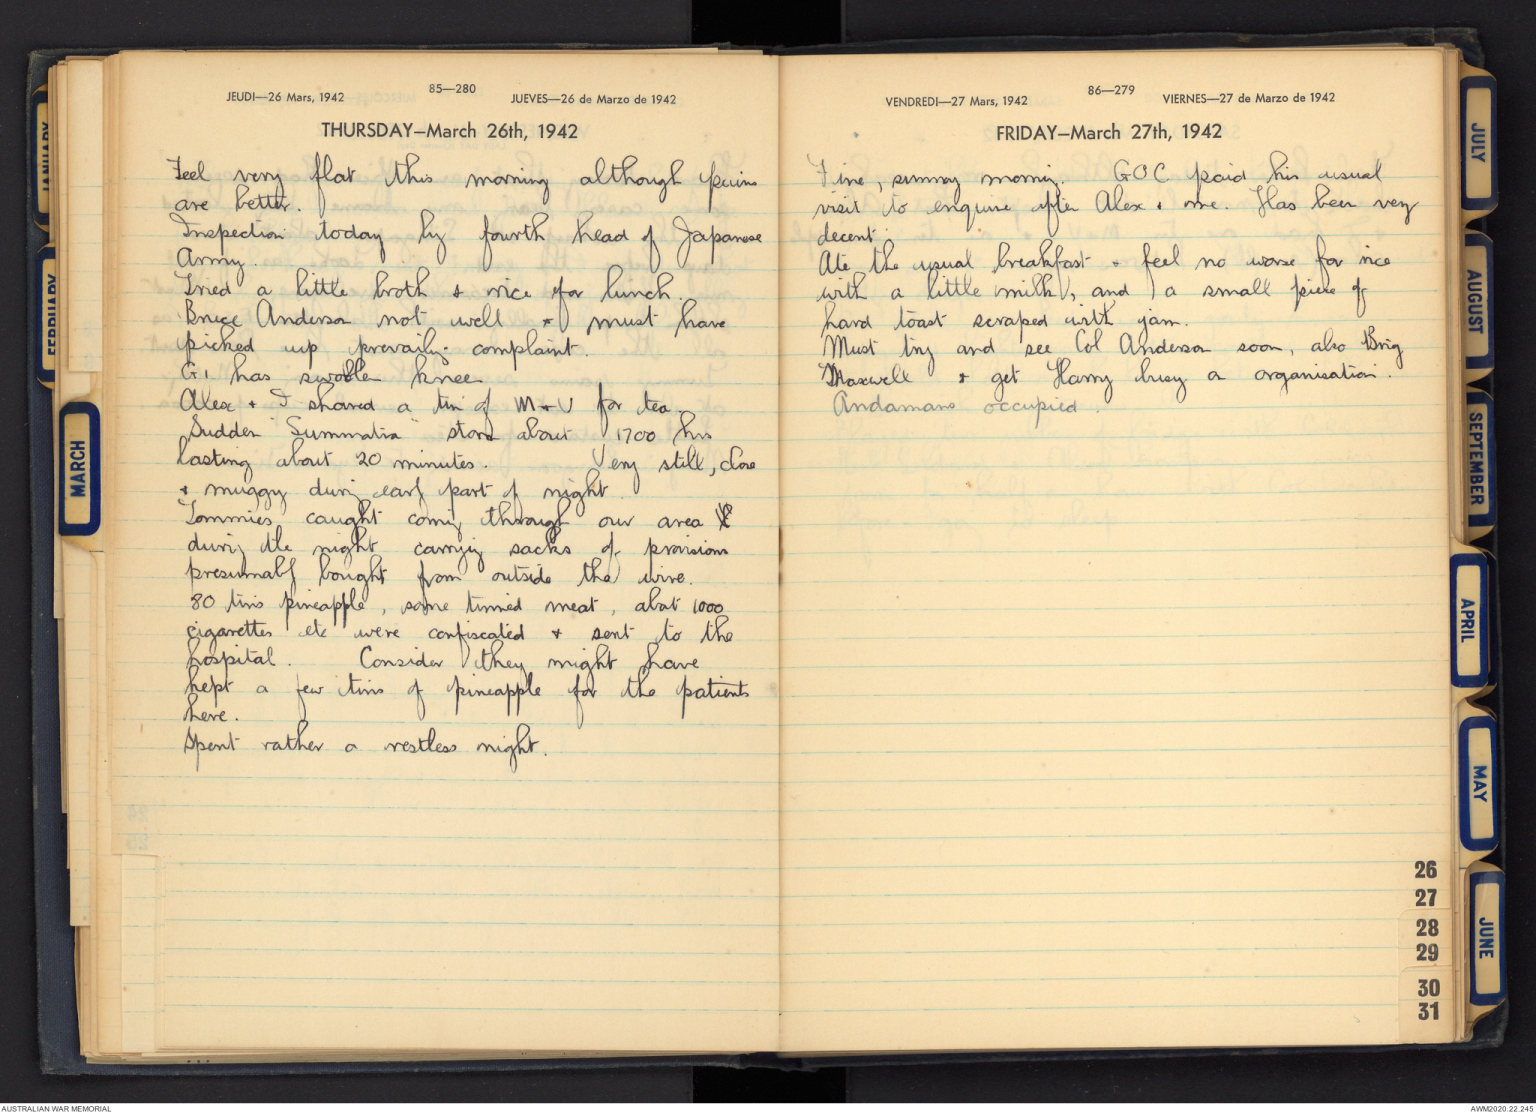 JANUARY
FEBRUARY
MARCH
JEUDI—26 Mars, 1942
85—280
JUEVES—26 de Marzo de 1942
THURSDAY—March 26th, 1942
Feel very flat this morning although pains
are better.
Inspection today by fourth head of Japanese
Army.
Tried a little broth & rice for lunch.
Bruce Anderson not well & must have
picked up prevailing complaint.
G1 has swollen knee
Alex & I shared a tin of M & V for tea.
Sudden "Summatra" storm about 1700 hrs
lasting about 20 minutes. Very still, close
& muggy during early part of night.
Tommies caught coming through our area
during the night carrying sacks of provisions
presumably bought from outside the wire.
80 tins pineapple, some tinned meat, about 1000
cigarettes etc were confiscated & sent to the
hospital. Consider they might have
kept a few tins of pineapple for the patients
here.
Spent rather a restless night.
VENDREDI—27 Mars, 1942
86—279
VIERNES—27 de Marzo de 1942
FRIDAY—March 27th, 1942
Fine, sunny morning. GOC paid his usual
visit to enquire after Alex & me. Has been very
decent.
Ate the usual breakfast & feel no worse for rice
with a little milk, and a small piece of
hard toast scraped with jam.
Must try and see Col Anderson soon, also Brig
Maxwell & get Harry busy on organisation.
Andamans occupied.
26
27
28
29
30
31
JULY
AUGUST
SEPTEMBER
APRIL
MAY
JUNE
AUSTRALIAN WAR MEMORIAL
AWM2020.22.245